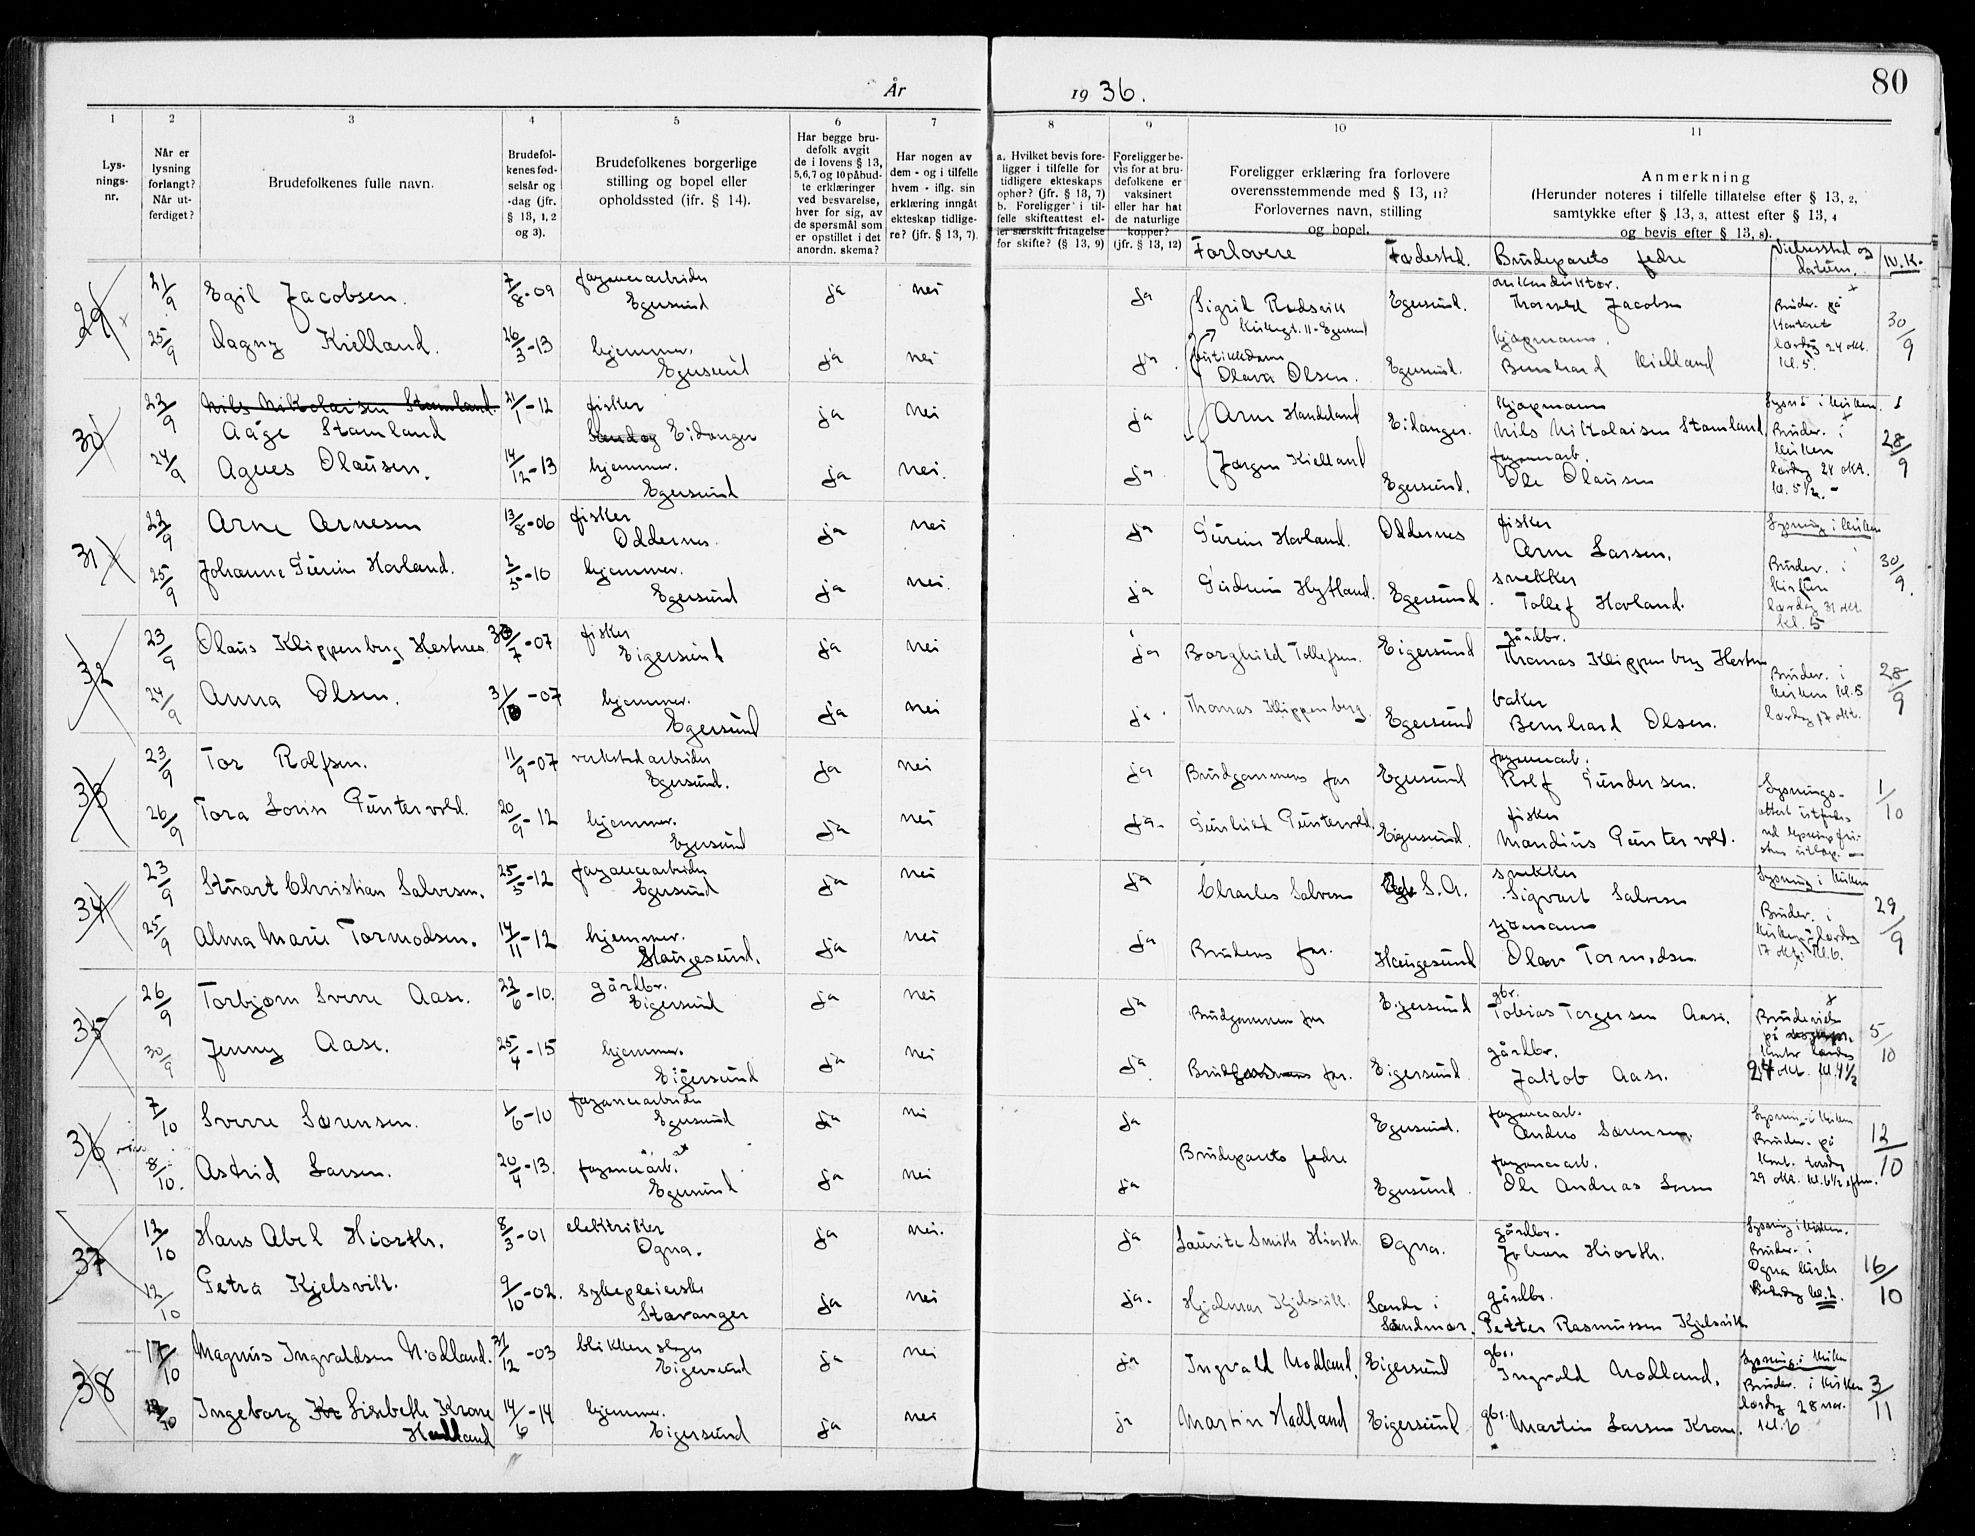 80
År 1936.
1 2 3 4 5 6 7 8 9 10 11
Lys-
nings-
nr.
Når er
lysning
forlangt?
Når ut-
ferdiget?
Brudefolkenes fulle navn.
Brudefol-
kenes fød-
selsår og
-dag (jfr.
§ 13, 1, 2
og 3).
Brudefolkenes borgerlige
stilling og bopel eller
opholdssted (jfr. § 14).
Har begge bru-
defolk avgit
de i lovens § 13,
5,6,7 og 10 påbud-
te erklæringer
ved besvarelse,
hver for sig, av
de spørsmål som
er opstillet i det
anordn. skema?
Har nogen av
dem - og i tilfelle
hvem - iflg. sin
erklæring inngåt
ekteskap tidlige-
re? (jfr. § 13, 7).
a. Hvilket bevis fore-
ligger i tilfelle for
tidligere ekteskaps
ophør? (jfr. § 13, 7)
b. Foreligger i til-
felle skifteattest el-
ler særskilt fritagelse
for skifte? (§ 13, 9)
Foreligger be-
vis for at bru-
defolkene er
vaksinert
eller har hat
de naturlige
kopper?
(jfr. § 13, 12)
Foreligger erklæring fra forlovere
overensstemmende med § 13, 11?
Forlovernes navn, stilling
og bopel.
Anmerkning
(Herunder noteres i tilfelle tillatelse efter § 13, 2,
samtykke efter § 13, 3, attest efter § 13, 4
og bevis efter § 13, 8).
Forlovere Fødested. Brudeparets fedre Vielsessted og datum. N.K.
29 21/9 Egil Jacobsen. 7/8-09 fayancearbeider Egersund ja nei ja Sigrid Rodsvik Egersund. Thorvald Jacobsen
Kirkegt. 11 - Egersund
25/9 Dagny Kielland. 26/3-13 hjemmev. Egersund ja nei ja. butikkdame Olava Olsen. Egersund. kjøpmann. Bernhard Kielland
Bruder. på kontoret lørdag 24 okt. kl. 5. 30/9
30 23/9 Nils Nikolaisen Stamland. 21/1-12 fisker ja nei ja Arne Handeland Eidanger. kjøpmann Nils Nikolaisen Stamland
Aage Stamland Eidanger
24/9 Agnes Olausen. 14/12-13 hjemmev. Egersund ja nei. ja. Jørgen Kielland Egersund. fayancearb. Ole Olausen
Lysn. i kirken. Bruder. i kirken lørdag 24 okt. kl. 5½. 28/9
31 22/9 Arne Arnesen 13/8-06 fisker Oddernes. ja nei ja Gurine Hovland. Oddernes fisker Arne Larsen.
25/9 Johanne Gurine Hovland. 2/5-10 hjemmev. Egersund ja nei. ja Gudrun Hytland. Egersund. snekker Tollef Hovland.
Lysning i kirken Bruder. i kirken lørdag 31 okt. kl. 5 30/9.
32 23/9 Olaus Klippenberg Hestnes. 30/7-07 fisker Eigersund ja nei ja Borghild Tollefsen. Eigersund gårdbr. Thomas Klippenberg Hestnes
24/9 Anna Olsen. 31/10-07 hjemmev. Egersund ja nei ja. Thomas Klippenberg. Egersund baker Bernhard Olsen.
Bruder. i kirken kl. 5 lørdag 17 okt. 28/9
33 23/9 Tor Rolfsen. 11/9-07 verkstedarbeider Egersund. ja nei ja Brudgommens far Egersund fayancearb. Rolf Gundersen.
26/9 Tora Lovise Puntervold. 20/9-12 hjemmev. Egersund ja nei ja. Gunhild Puntervold. Eigersund. fisker Mandius Puntervold.
Lysnings-
attest utferdes
ved lysningsfri-
stens utløp. - 1/10
34 23/9 Stuart Christian Salvesen. 25/5-12 fayancearbeider Egersund ja nei ja Charles Salvesen U.S.A. snekker Sigvart Salvesen
25/9 Alma Marie Tormodsen. 14/11-12 hjemmev. Haugesund. ja nei ja Brudens far. Haugesund sjømann Olav Tormodsen
Lysning i kirken Bruder. i kirken lørdag 17 okt. kl. 6. 29/9
35 26/9 Torbjørn Sverre Aase. 22/6-10. gårdbr. Eigersund ja nei ja Brudgommens far Eigersund gbr. Tobias Torgersen Aase.
30/9 Jenny Aase. 25/4-15 hjemmev. Eigersund ja nei ja. Brudens far. Eigersund. gårdbr. Jakob Aase.
Brudevielse på kontor lørdag 24 okt. kl. 4½ 5/10
36 7/10 Sverre Sørensen. 1/6-10 fayancearbeider Egersund ja nei ja Egersund. fayancearb. Andreas Sørensen.
Brudeparets fedre
8/10. Astrid Larsen. 20/4-13. fayancearb. Egersund ja nei ja Egersund. fayancearb. Ole Andreas Larsen
Lysning i kirken Bruder. på kont. torsdag 29 okt. kl. 6½ eftm. 12/10
37 12/10 Hans Abel Hiorth. 8/3-01 elektriker Ogna. ja nei. ja Lauritz Smith Hiorth. Ogna. gårdbr. Johan Hiorth.
12/10 Petra Kjelsvik. 9/10-02. sykepleierske Stavanger ja nei ja. Hjalmar Kjelsvik. Sande i Søndmør. gårdbr. Petter Rasmussen Kjelsvik
Lysning i kirken. Bruder. i Ogna kirke 16/10
38 17/10 Magnus Ingvaldsen Nodland. 31/12-03 blikkenslager Eigersund ja nei ja Ingvald Nodland. Eigersund gbr. Ingvald Nodland.
Ingeborg Lisebeth Krone Hadland 14/6-14 hjemmev. Eigersund ja nei ja Martin Hadland Eigersund gbr. Martin Larsen Krone.
Lysning i kirken Bruder. i kirken lørdag 28 nov. kl. 6 3/11